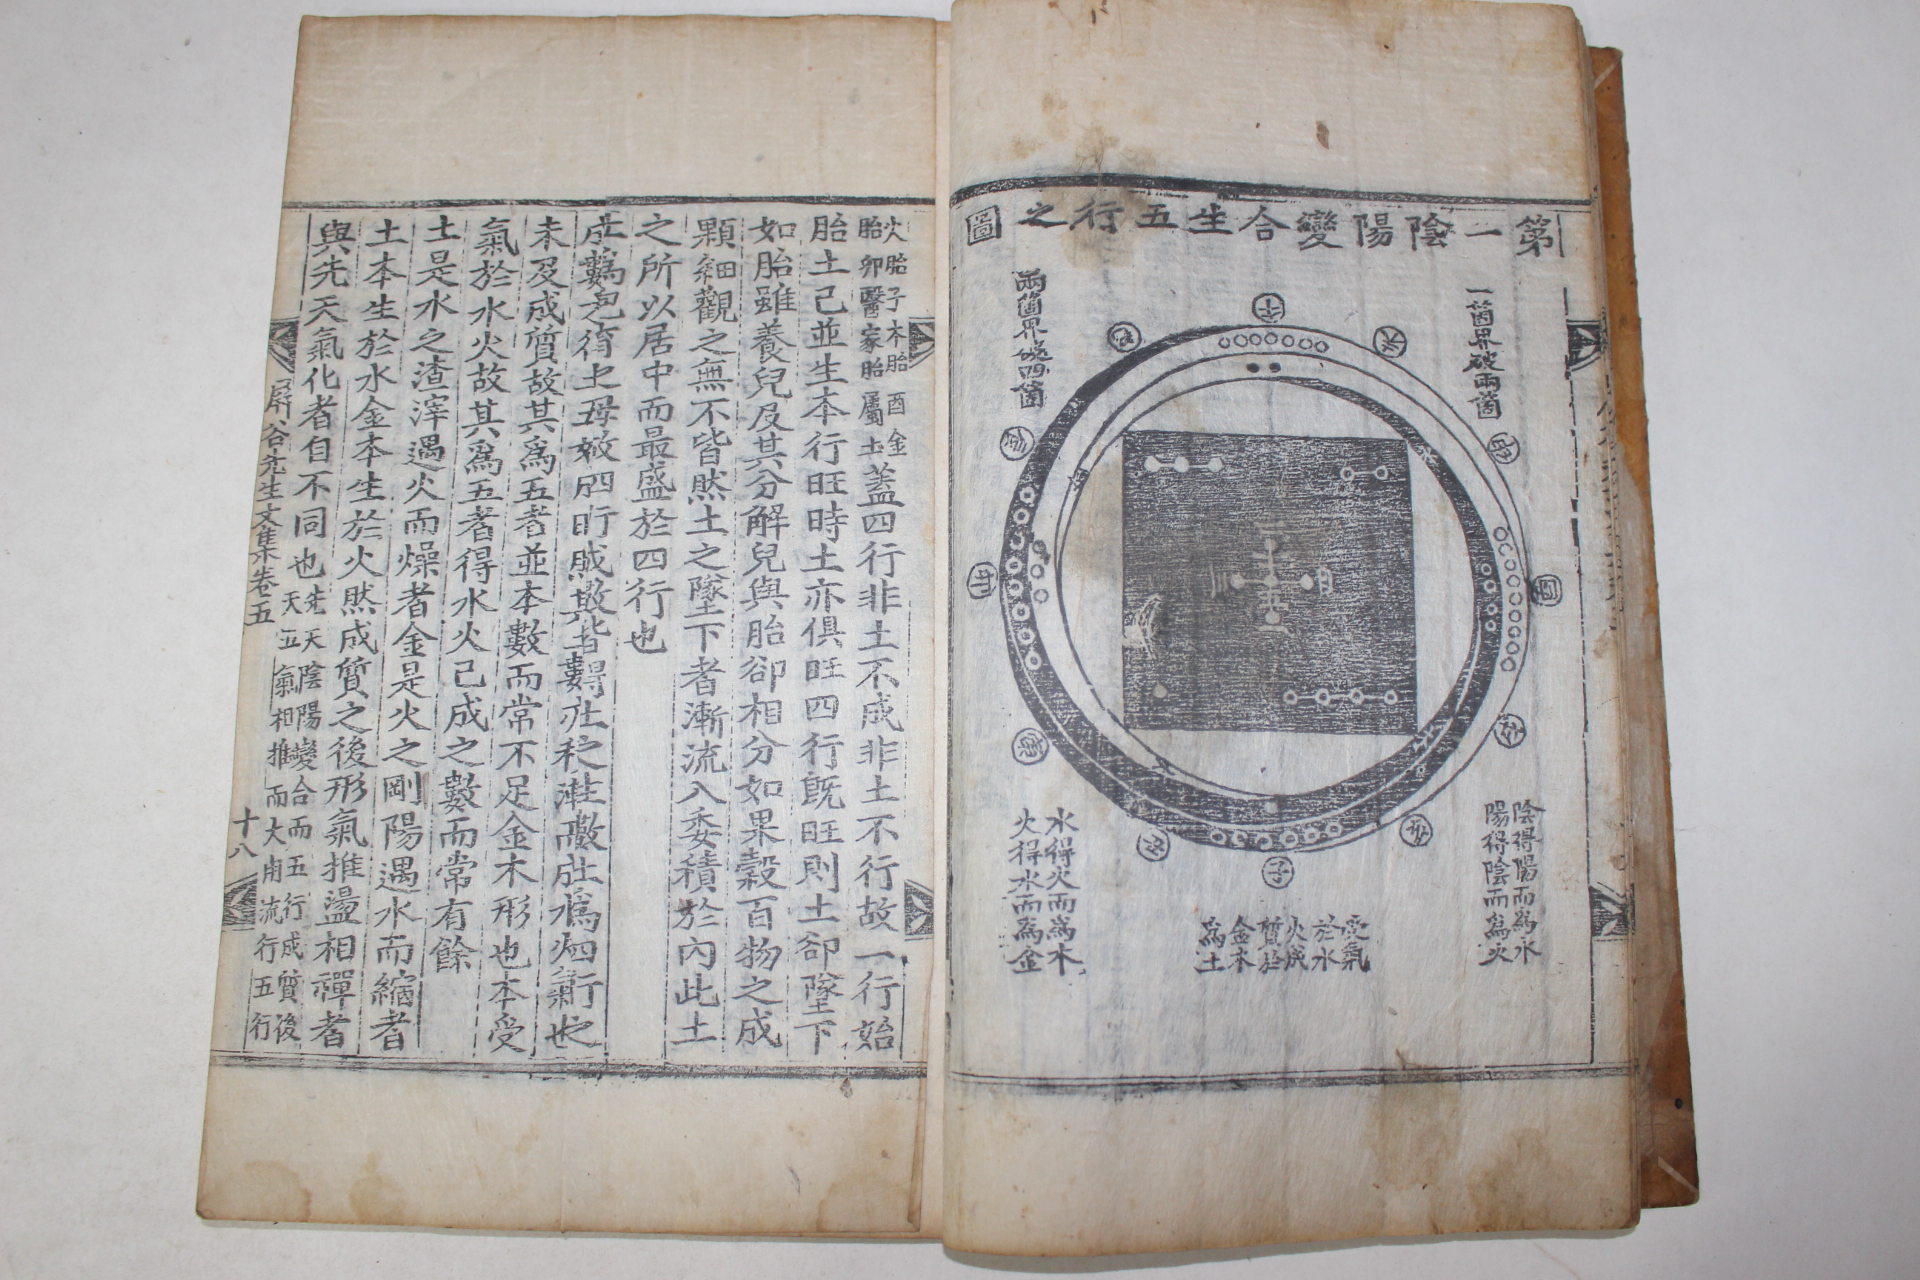 第一陰陽變合生五行之圖
一箇界破兩箇
兩箇界破四箇
陰得陽而為水
陽得陰而為火
受氣
於水
火成
質於
金木
為土
水得火而為木
火得水而為金
子
火胎子木胎酉金
胎卯醫家胎屬土
蓋四行非土不成非土不行故一行始
胎土已並生本行旺時土亦俱旺四行既旺則土卻墜下
如胎雖養兒及其分解兒與胎卻相分如果穀百物之成
顆細觀之無不皆然土之墜下者漸流入委積於內此土
之所以居中而最盛於四行也
未及成質故其為五者並本數而常不足金木形也本受
氣於水火故其為五者得水火已成之數而常有餘
土是水之渣滓遇火而燥者金是火之剛陽遇水而縮者
土本生於水金本生於火然成質之後形氣推盪相禪者
與先天氣化者自不同也
先天陰陽變合而五行成質後
天五氣相推而大用流行五行
屏谷先生文集卷五
十八